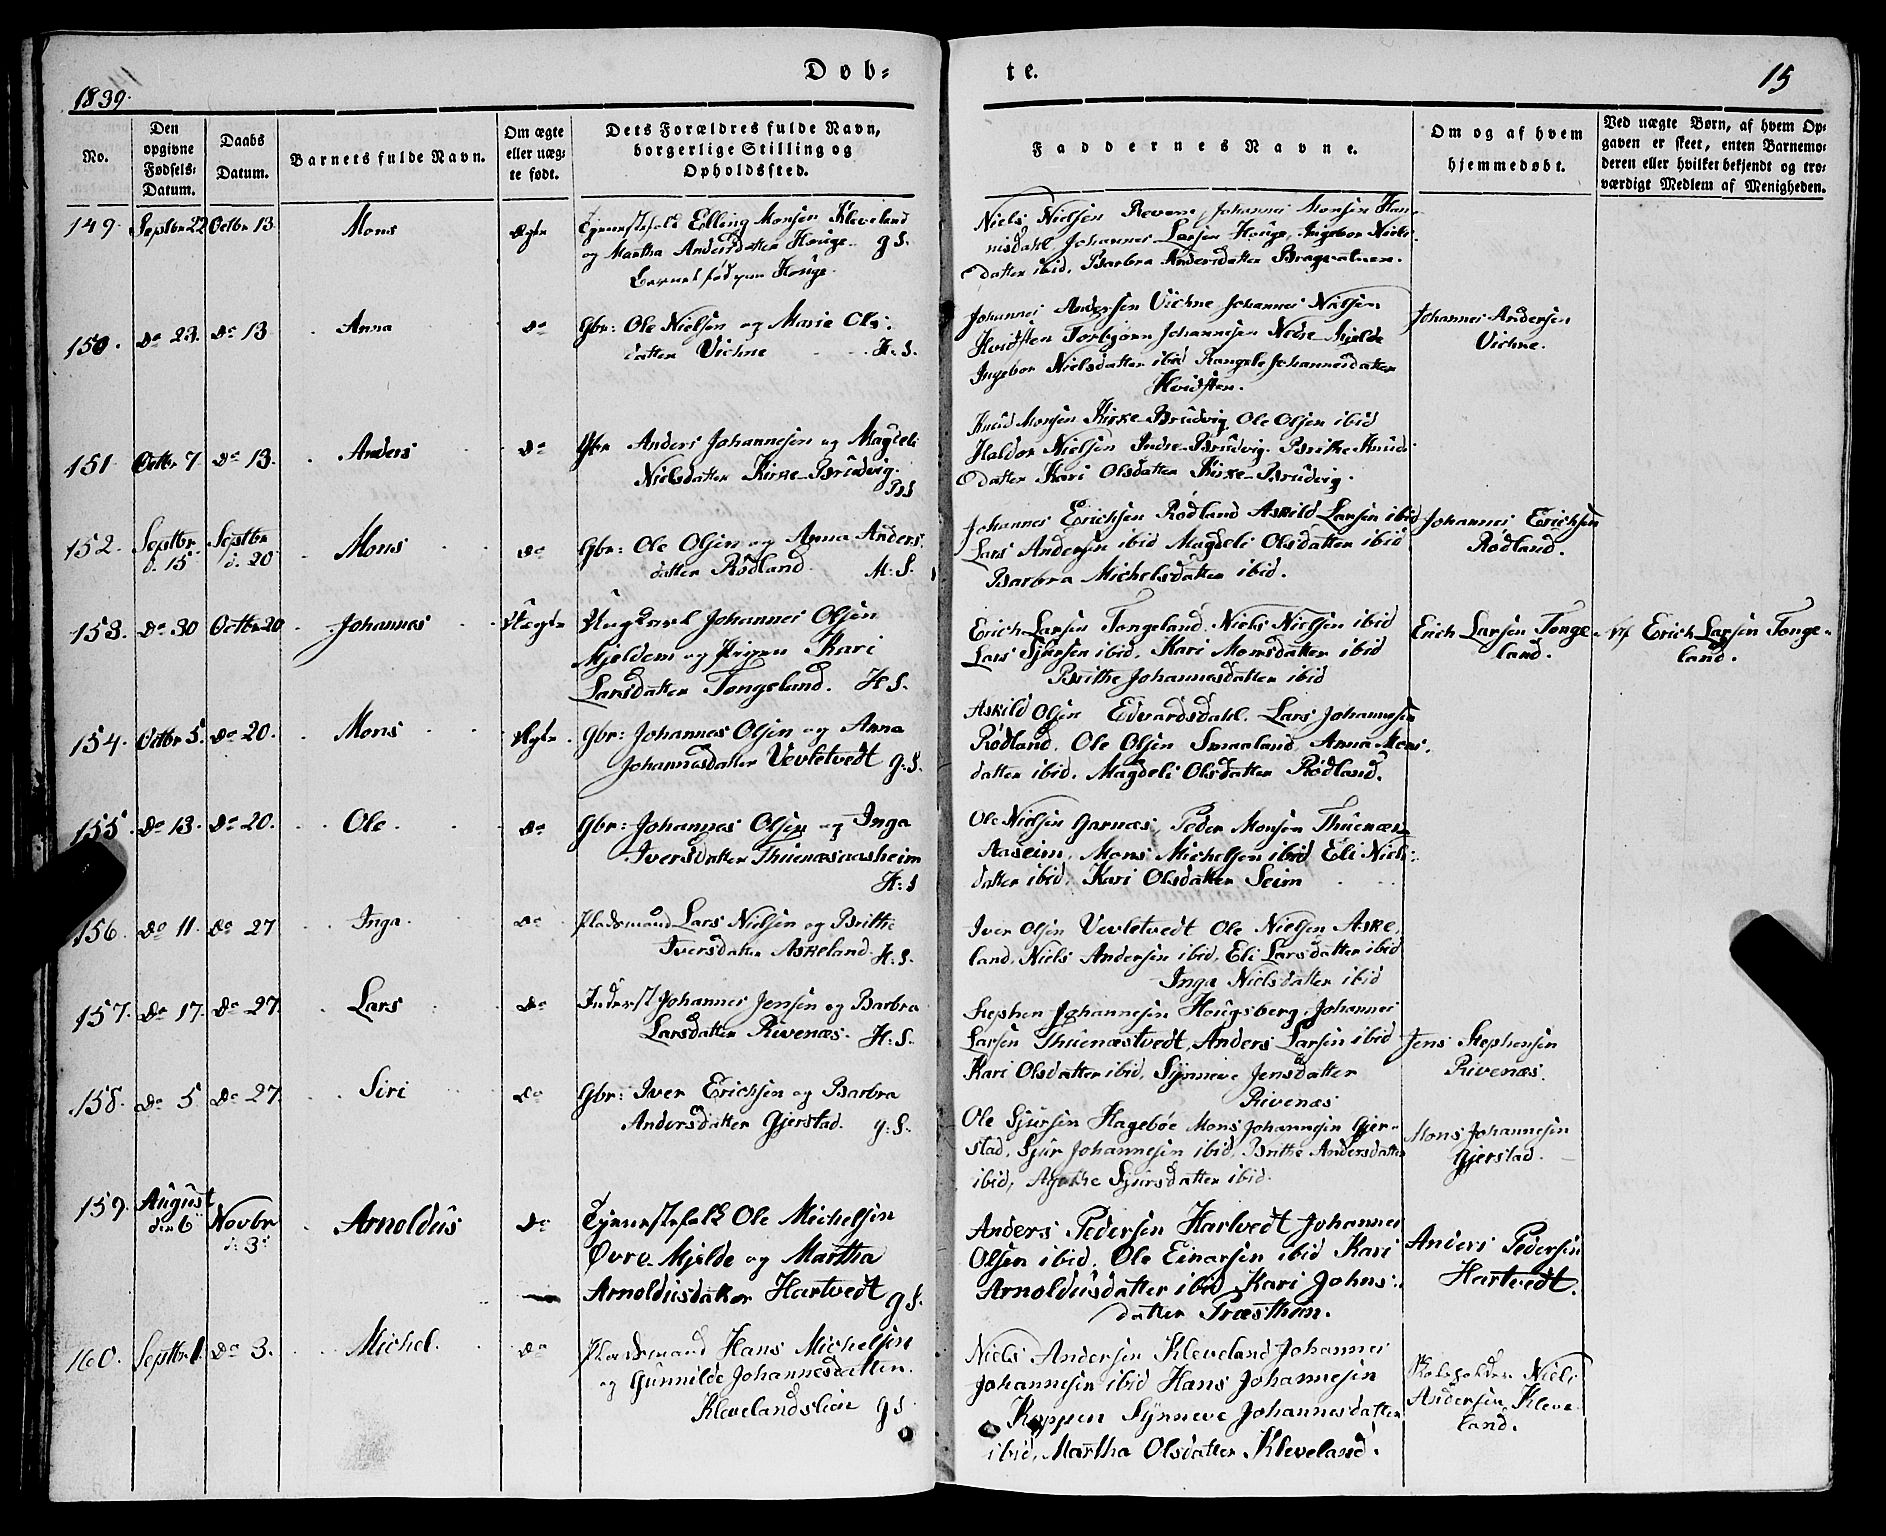 Døb=
te.
1839.
15
No.
Den opgivne Fødsels-Datum.
Daabs Datum.
Barnets fulde Navn.
Om ægte eller uægte født.
Dets Forældres fulde Navn, borgerlige Stilling og Opholdssted.
Faddernes Navne.
Om og af hvem hjemmedøbt.
Ved uægte Børn, af hvem Opgaven er skeet, enten Barnemoderen eller hvilket bekjendt og troværdigt Medlem af Menigheden.
149. Septbr 22 Octbr 13 Mons ægte
Tjenestefolk Elling Monsen Kleveland
og Martha Andersdatter Houge. G.S.
Barnet fød paa Houge.
Niels Nielsen Revem, Johannes Monsen Han-
nisdahl, Johannes Larsen Houge, Ingebor Niels-
datter ibid, Barbra Andersdatter
150. do 23. do 13 Anna do
Gbr: Ole Nielsen og Marie Ols-
datter Vichne H:S.
Johannes Andersen Vichne Johannes Nielsen
Hvidsten Torbjørn Johannesen Nedre Mjelde
Ingebor Nielsdatter ibid Rangele Johannesdatter
Hvidsten.
Johannes Andersen
Vichne.
151 Octbr 7 do 13. Anders do
Gbr Anders Johannesen og Magdeli
Nielsdatter Kirke-Brudvig.
BS
Knud Monsen Kirke-Brudvig Ole Olsen ibid
Haldor Nielsen Indre-Brudvig. Brithe Knuds-
datter Kari Olsdatter Kirke-Brudvig.
152. Septbr d. 15 Septbr d. 20 Mons do
Gbr: Ole Olsen og Anna Anders-
datter Rødland. M:S.
Johannes Erichsen Rødland Askild Larsen ibid
Lars Andersen ibid Magdeli Olsdatter ibid
Barbra Michelsdatter ibid.
Johannes Erichsen
Rødland.
153. do 30 Octbr 20 Johannes Uægte
Ungkarl Johannes Olsen
Mjeldem og Pigen Kari
Larsdatter Tongeland. H.S.
Erich Larsen Tongeland, Niels Nielsen ibid
Lars Sjursen ibid, Kari Monsdatter ibid
Brithe Johannesdatter ibid
Erich Larsen Tonge-
land.
Af Erich Larsen Tonge-
land.
154. Octbr 5. do 20. Mons Ægte
Gbr: Johannes Olsen og Anna
Johannesdatter Vevletvedt G.S.
Askild Olsen Edvardsdahl. Lars Johannesen
Rødland, Ole Olsen Smaaland, Anna Mons-
datter ibid, Magdeli Olsdatter Rødland.
155. do 13. do 20. Ole do
Gbr: Johannes Olsen og Inga
Iversdatter Thuenæsaasheim
H:S
Ole Nielsen Garnæs, Peder Monsen Thuenæs-
Aaseim, Mons Michelsen ibid Eli Niels-
datter ibid, Kari Olsdatter Seim
156. do 11. do 27 Inga do
Pladsmand Lars Nielsen og Brithe
Iversdatter Askeland. H:S.
Iver Olsen Vevletvedt Ole Nielsen Aske-
land, Niels Andersen ibid, Eli Larsdatter ibid
Inga Nielsdatter ibid
157. do 17. do 27. Lars do
Inderst Johannes Jensen og Barbra
Larsdatter Rivenæs. H:S.
Stephen Johannesen Hougsberg, Johannes
Larsen Thuenæstvedt, Anders Larsen ibid
Kari Olsdatter ibid, Synneve Jensdatter
Rivenæs
Jens Stephensen
Rivenæs.
158. do 5 do 27. Siri do
Gbr: Iver Erichsen og Barbra
Andersdatter Gjerstad. G:S.
Ole Sjursen Hagebøe Mons Johannesen Gjer-
stad, Sjur Johannesen ibid, Brithe Andersdatter
ibid, Agathe Sjursdatter ibid.
Mons Johannesen
Gjerstad.
159. August den 6 Novbr d: 3 Arnoldus do
Tjenestefolk Ole Michelsen
Øvre-Mjelde og Martha
Arnoldusdatter Hartvedt G.S.
Anders Pedersen Hartvedt Johannes
Olsen ibid, Ole Einarsen ibid Kari
Arnoldusdatter ibid Kari Johns-
datter Træsthun.
Anders Pedersen
Hartvedt.
160. Septbr 1. do 3. Michel. do
Pladsmand Hans Michelsen
og Gunnilde Johannesdatter
Klevelandslien G.S.
Niels Andersen Kleveland Johannes
Johannesen ibid Hans Johannesen
Koppen Synneve Johannesdatter
ibid, Martha Olsdatter Kleveland.
Niels
Andersen Kleve-
land.